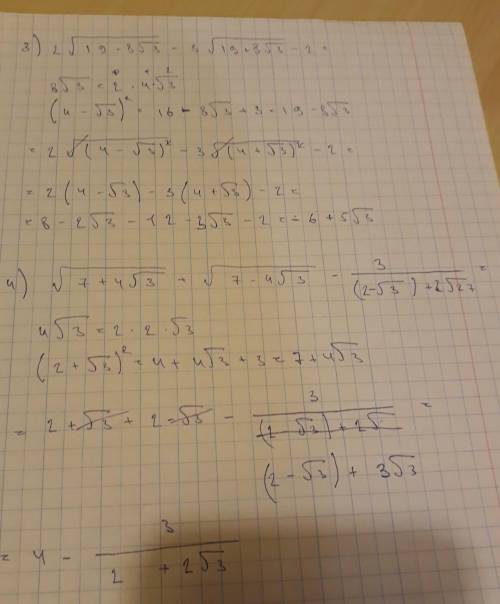 3) 2√(19-8√3) - 3√(19+8√3) - 2 =
8√3 = 2 · 4 · √3
(4 - √3)² = 16 - 8√3 + 3 = 19 - 8√3
= 2√(4 - √3)² - 3√(4 + √3)² - 2 =
= 2(4 - √3) - 3(4 + √3) - 2 =
= 8 - 2√3 - 12 - 3√3 - 2 = - 6 + 5√3
4) √(7 + 4√3) + √(7 - 4√3) - 3/((2-√3) + 2√27) =
4√3 = 2 · 2 · √3
(2 + √3)² = 4 + 4√3 + 3 = 7 + 4√3
= 2 + √3 + 2 - √3 - 3/((2 - √3) + 2√ =
(2 - √3) + 3√3
= 4 - 3/(2 + 2√3)